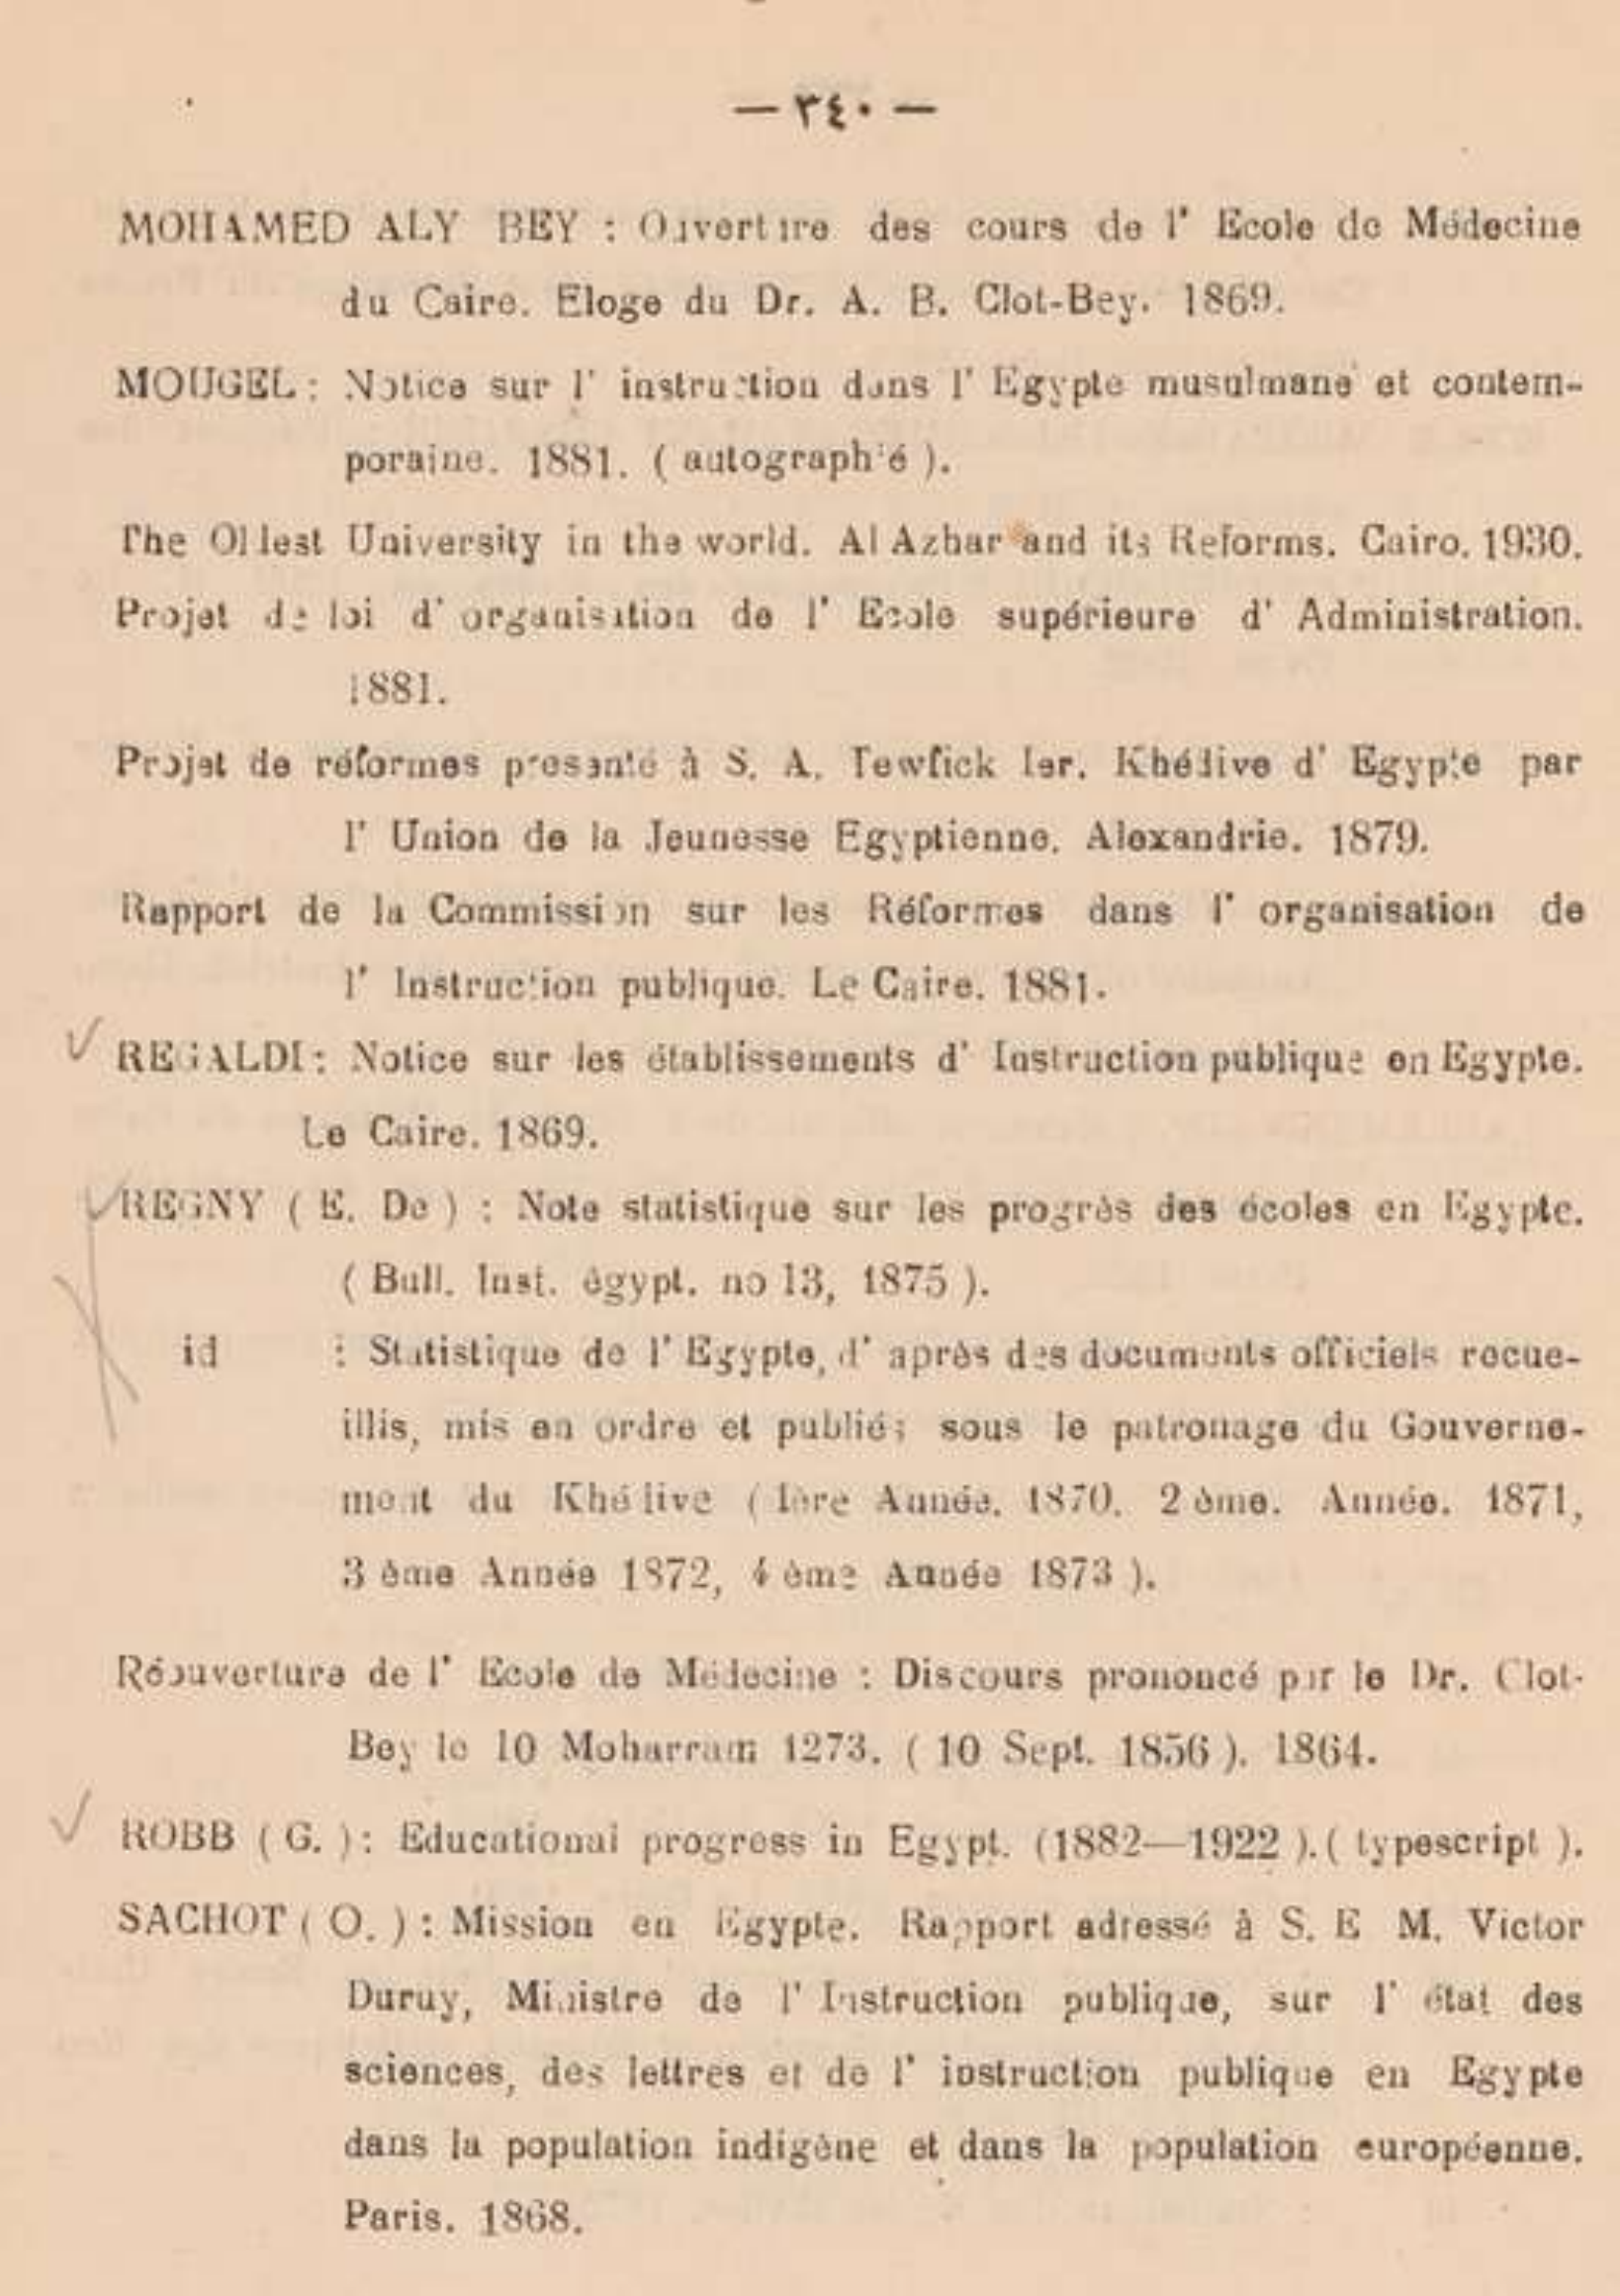 — ٣٤٠ —
MOHAMED ALY BEY : Ouverture des cours de l' Ecole de Médecine
du Caire. Eloge du Dr. A. B. Clot-Bey. 1869.
MOUGEL : Notice sur l' instruction dans l' Egypte musulmane et contem-
poraine. 1881. ( autographié ).
The Oldest University in the world. Al Azhar and its Reforms. Cairo. 1930.
Projet de loi d' organisation de l' Ecole supérieure d' Administration.
1881.
Projet de réformes presenté à S. A. Tewfick Ier. Khédive d' Egypte par
l' Union de la Jeunesse Egyptienne. Alexandrie. 1879.
Rapport de la Commission sur les Réformes dans l' organisation de
l' Instruction publique. Le Caire. 1881.
REGALDI : Notice sur les établissements d' Instruction publique en Egypte.
Le Caire. 1869.
REGNY ( E. De ) : Note statistique sur les progrès des écoles en Egypte.
( Bull. Inst. égypt. no 13, 1875 ).
id : Statistique de l' Egypte, d' après des documents officiels recue-
illis, mis en ordre et publiés sous le patronage du Gouverne-
ment du Khédive ( 1ère Année. 1870. 2 ème. Année. 1871,
3 ème Année 1872, 4 ème Année 1873 ).
Réouverture de l' Ecole de Médecine : Discours prononcé par le Dr. Clot-
Bey le 10 Moharram 1273. ( 10 Sept. 1856 ). 1864.
ROBB ( G. ) : Educational progress in Egypt. (1882—1922 ). ( typescript ).
SACHOT ( O. ) : Mission en Egypte. Rapport adressé à S. E M. Victor
Duruy, Ministre de l' Instruction publique, sur l' état des
sciences, des lettres et de l' instruction publique en Egypte
dans la population indigène et dans la population européenne.
Paris. 1868.